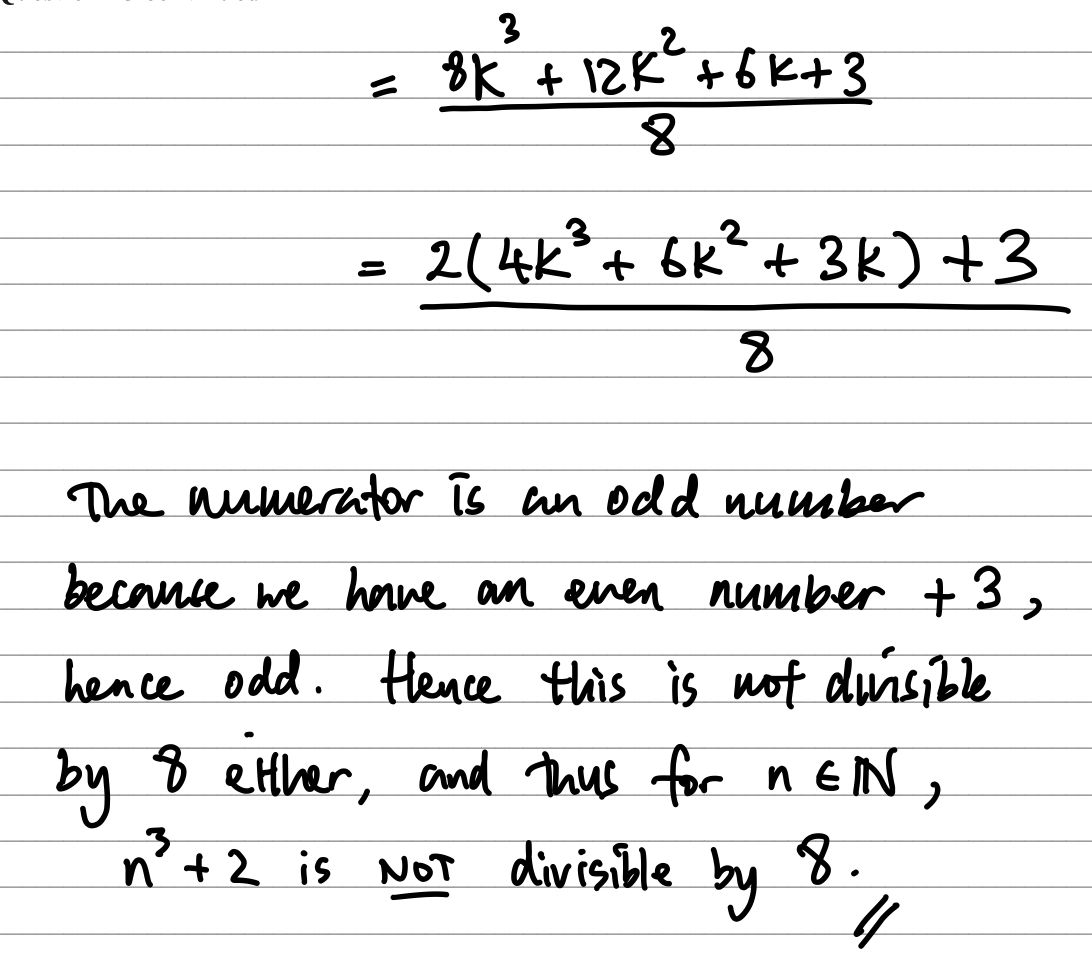 = 8k³ + 12k² + 6k + 3
8
= 2(4k³ + 6k² + 3k) + 3
8
The numerator is an odd number
because we have an even number + 3,
hence odd. Hence this is not divisible
by 8 either, and thus for n ∈ ℕ,
n³ + 2 is NOT divisible by 8.